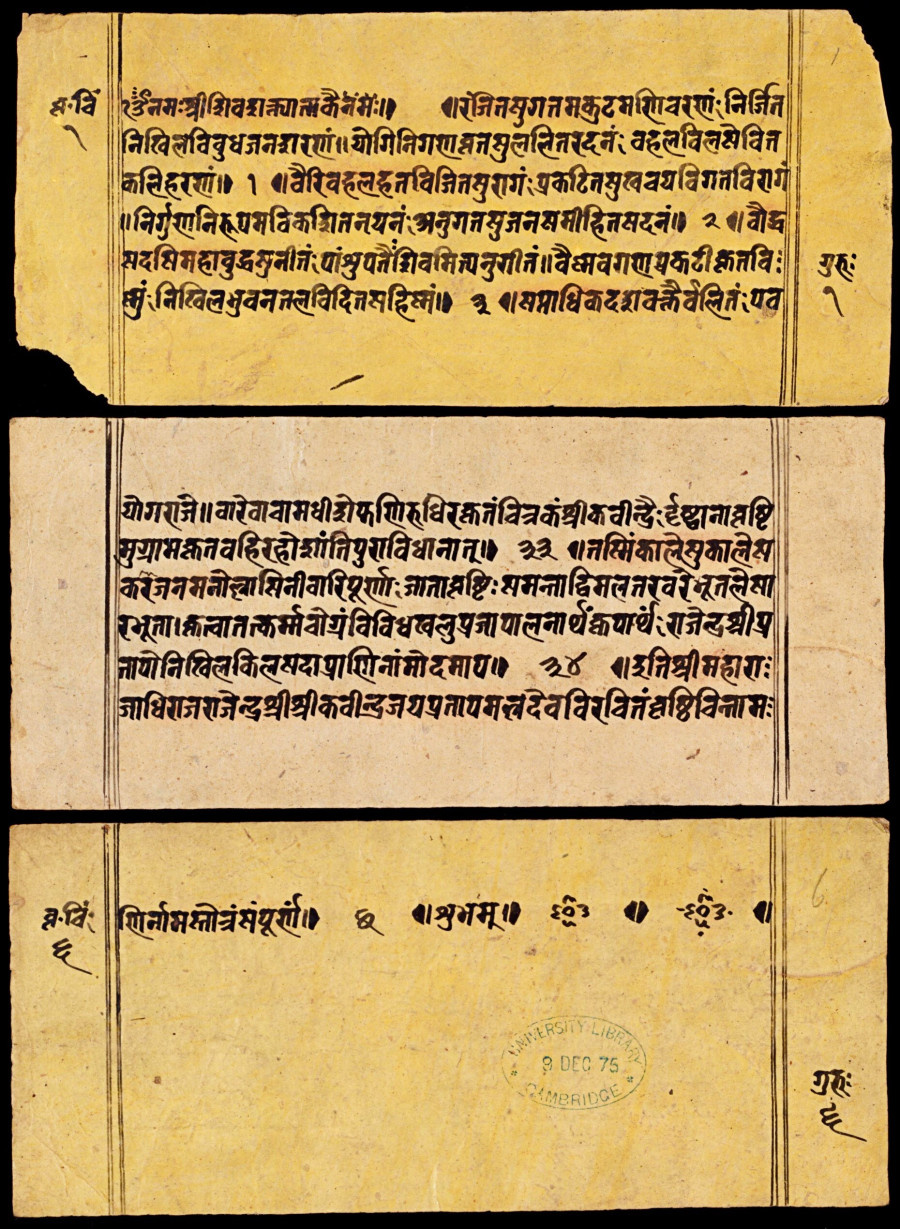 वृ॰चिं
१
नमःश्रीशिवशक्त्यात्मकैर्नमः॥ ॥रंजितसुगतमकुटमणिचरणं निर्जित
निखिलविबुधजनशरणं॥योगिनिगणवृतसुललितरदनं वहलविलसेवित
कलिहरणं॥ १ ॥वैरिवहलहतविजितसुरागं प्रकटितसुखचयविगतविरागं
॥निर्गुणनिरुपमविकशितनयनं अनुगतसुजनसमीहितसदनं॥ २ ॥बौद्ध
सदसिमहाबुद्धसुनीतं पांशुपतैंशिवमित्यनुगीतं॥वैष्मवगणप्रकटीकृतवि
ष्मुं निखिलभुवनतलविदितसहिष्मं॥ ३ ॥सप्ताधिकदशवक्त्रैर्वलितं पव
गुरुः
१
योगराजे॥वारेवाचामधीशेफणिरुधिरकृतंचित्रकंश्रीकवीन्द्रैः र्दृष्ट्वानावृष्टि
मुग्रामकृतवहिरहोशांतिपुराविधानात्॥ ३३ ॥तस्मिंकालेसुकालेस
करजनमनोल्लासिनीवारिपूर्णा जातावृष्टिः समन्ताद्विमलतरवरंभूतलेसा
रभूता।कृत्वातत्कर्म्मचोग्रंविविधखलुप्रजापालनार्थंकृपार्थं राजेन्द्रश्रीप्र
तापोनिखिलकिलसदाप्राणिनांमोदमाप॥ ३४ ॥इतिश्रीमहारा
जाधिराजराजेन्द्रश्रीश्रीकवीन्द्रजयप्रतापमल्लदेवविरचितंवृष्टिचिन्ताम
वृ॰चिं
६
णिर्नामस्तोत्रंसंपूर्णं॥ ॥शुभम्॥
6
UNIVERSITY LIBRARY
9 DEC 75
CAMBRIDGE
गुरुः
६